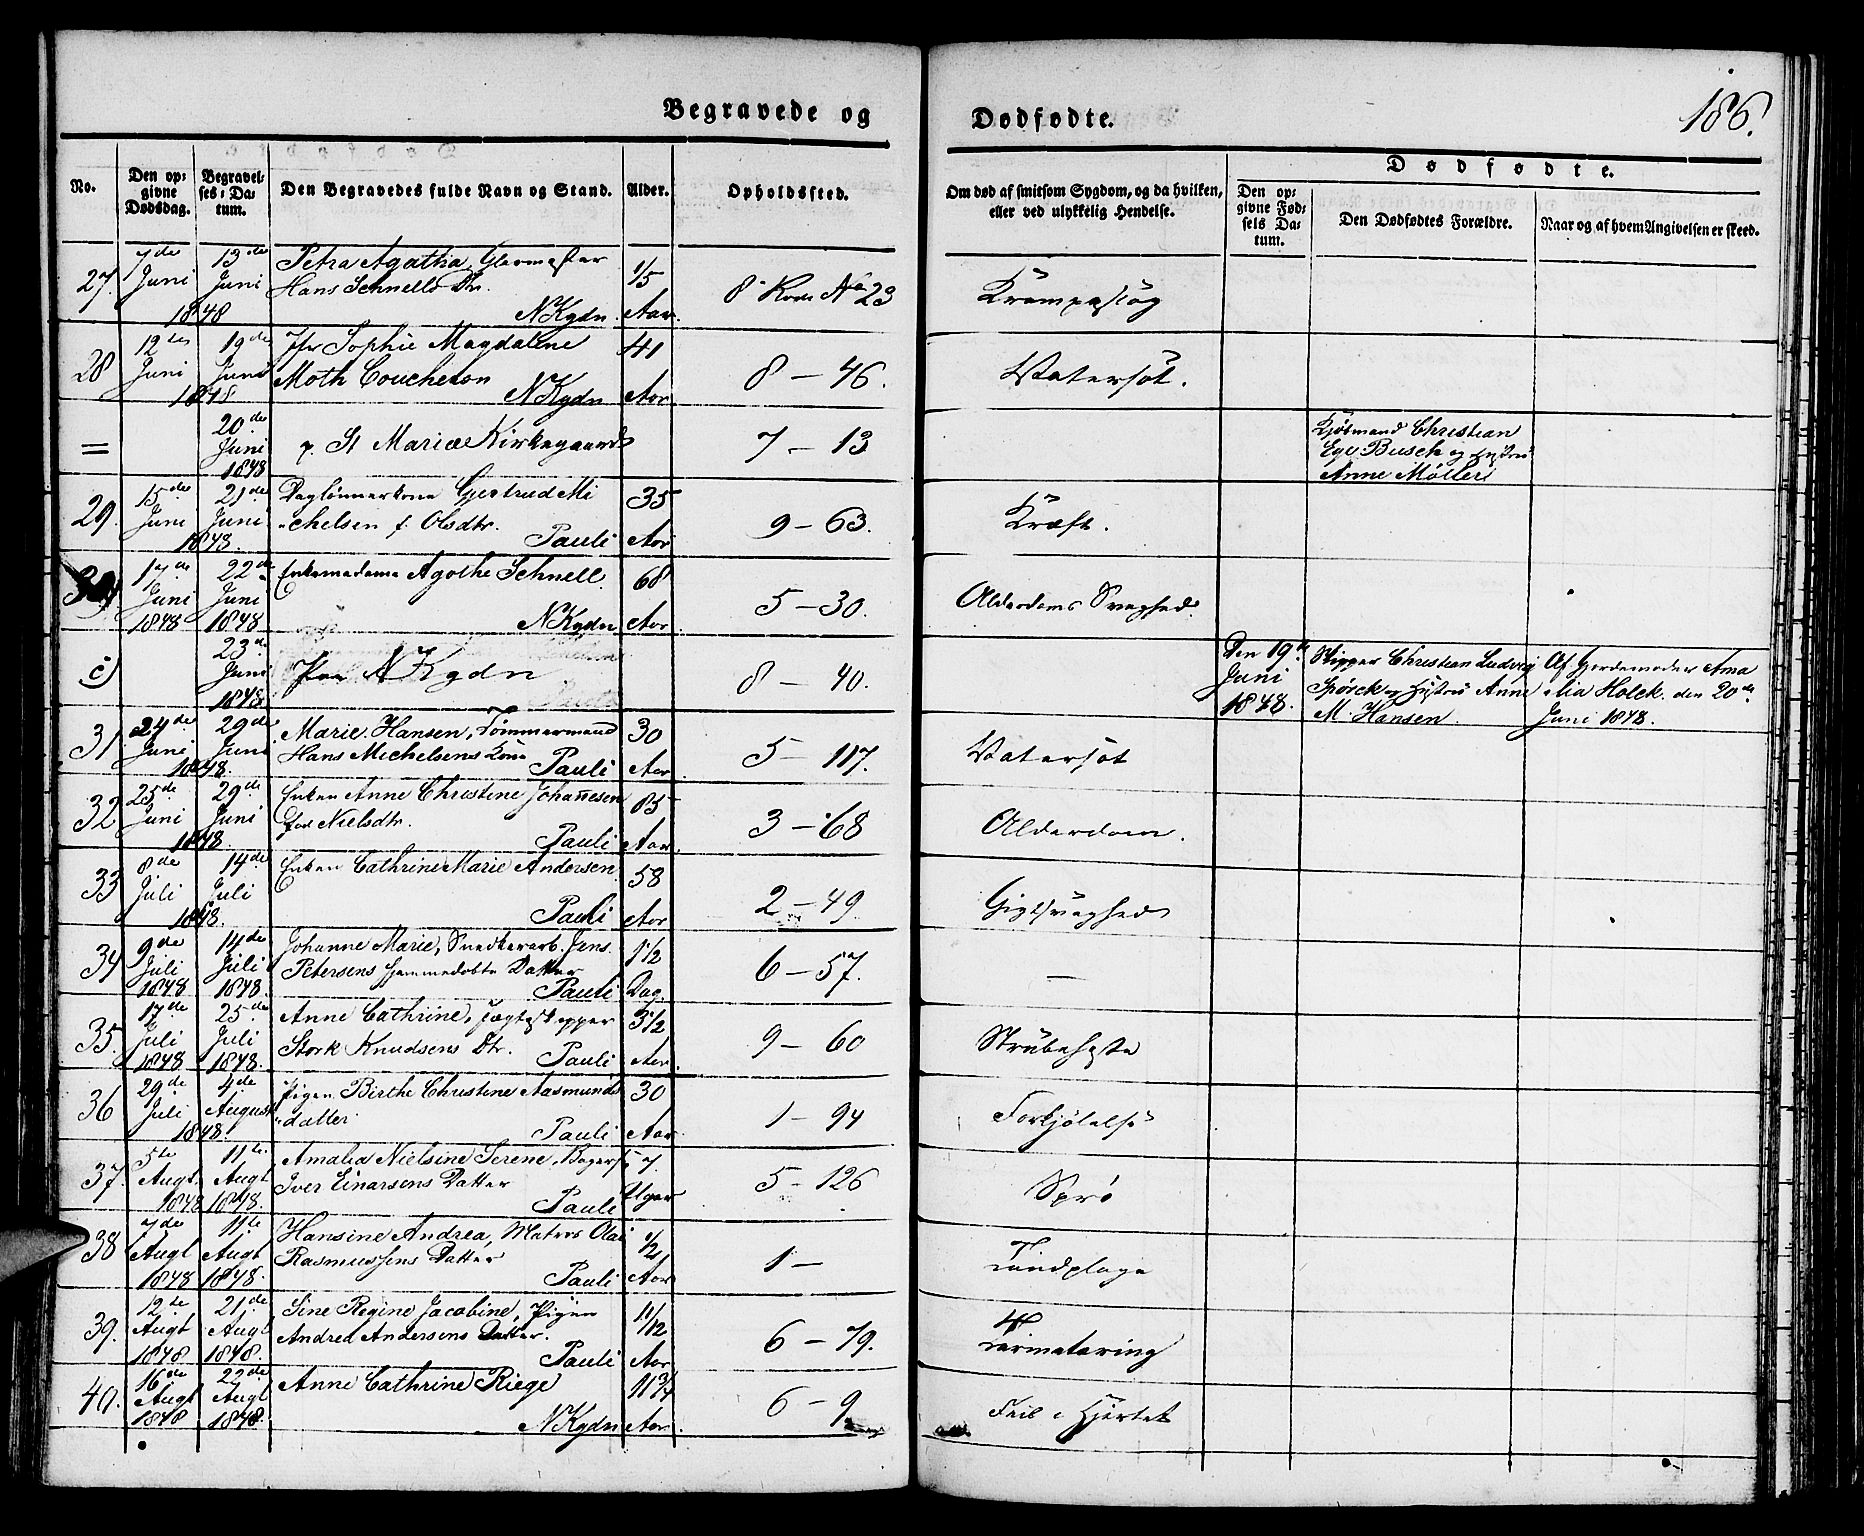 Begravede og
Dødfødte.
186.
No.
Den op-
givne
Dødsdag.
Begravel-
ses-Da-
tum.
Den Begravedes fulde Navn og Stand.
Alder.
Opholdssted.
Om død af smitsom Sygdom, og da hvilken,
eller ved ulykkelig Hendelse.
Dødfødte.
Den op-
givne Fød-
sels Da-
tum.
Den Dødfødtes Forældre.
Naar og af hvem Angivelsen er skeed.
27.
7de
Juni
13de
Juni
1848
Petra Agatha, Glarmester
Hans Schnells Dtr.
NKgdn.
1/5
Aar.
8 Rode No 23
Krampeslag
28
12te
Juni
19de
Juni
1848
Jfr Sophie Magdalene
Moth Coucheron
NKgdn
41
Aar
8 - 46.
Vatersot.
=
20de
Juni
1848
p. St Mariæ Kirkegaard
7 - 13
Kjøbmand Christian
Busch og Hustru
Anne Møller
29.
15de
Juni
21de
Juni
1848.
Daglønnerkone Gjertrud Mi
chelsen f. Olsdtr.
Pauli
35
Aar
9 - 63.
Kræft.
30
17de
Juni
1848
22de
Juni
1848
Enkemadame Agathe Schnell
NKgdn
68
Aar
5 - 30.
Alderdoms Svaghed.
c)
23de
Juni
1848
Paa NKgdn
8 - 40.
Den 19de
Juni
1848.
Skipper Christian Ludvig
Spörck og Hustru Anne
M. Hansen.
Af Gjordemoder Ama
lia Holck. den 20de
Juni 1848.
31
24de
Juni
29de
Juni
1848.
Marie Hansen, Tømmermand
Hans Michelsens Kone
Pauli
30
Aar
5 - 117.
Vatersot
32
25de
Juni
29de
Juni
1848.
Enken Anne Christine Johannesen
født Nielsdtr.
Pauli
85
Aar
3 - 68
Alderdom.
33
8de
Juli
14de
Juli
1848.
Enken Cathrine Marie Andersen.
Pauli
58
Aar
2 - 49
Gigtsvaghed
34
9de
Juli
1848
14de
Juli
1848.
Johanne Marie, Snedkerarb. Jens
Petersens hjemmedøbte Datter
Pauli
1 1/2
Dag.
6 - 57.
-
35.
17de
Juli
1848
25de
Juli
1848.
Anne Cathrine, Jægteskipper
Stork Knudsens Dtr.
Pauli
3 1/2
Aar.
9 - 60
Strubehoste
36
29de
Juli
4de
August
1848.
Pigen Birthe Christine Aasmunds
datter
Pauli
30
Aar.
1 - 94
Forkjølelse
37.
5te
Augt.
1848
11te
Augt
1848.
Amalia Nielsine Serene, Bagers.
Iver Einarsens Datter
Pauli
7
Uger
5 - 126
Sprø
38
7de
Augt
1848
11te
Augt
1848.
Hansine Andrea, Matros Olai
Rasmussens Datter
Pauli
1/2
Aar
1 -
Tandplage
39.
12te
Augt
1848
21de
Augt
1848.
Sine Regine Jacobine, Pigen
Andrea Andersens Datter.
Pauli
11/12
Aar
6 - 79.
40.
16de
Augt
1848
22de
Augt
1848.
Anne Cathrine Riege
NKgdn
11 3/4
Aar.
6 - 9
Feil i Hjertet